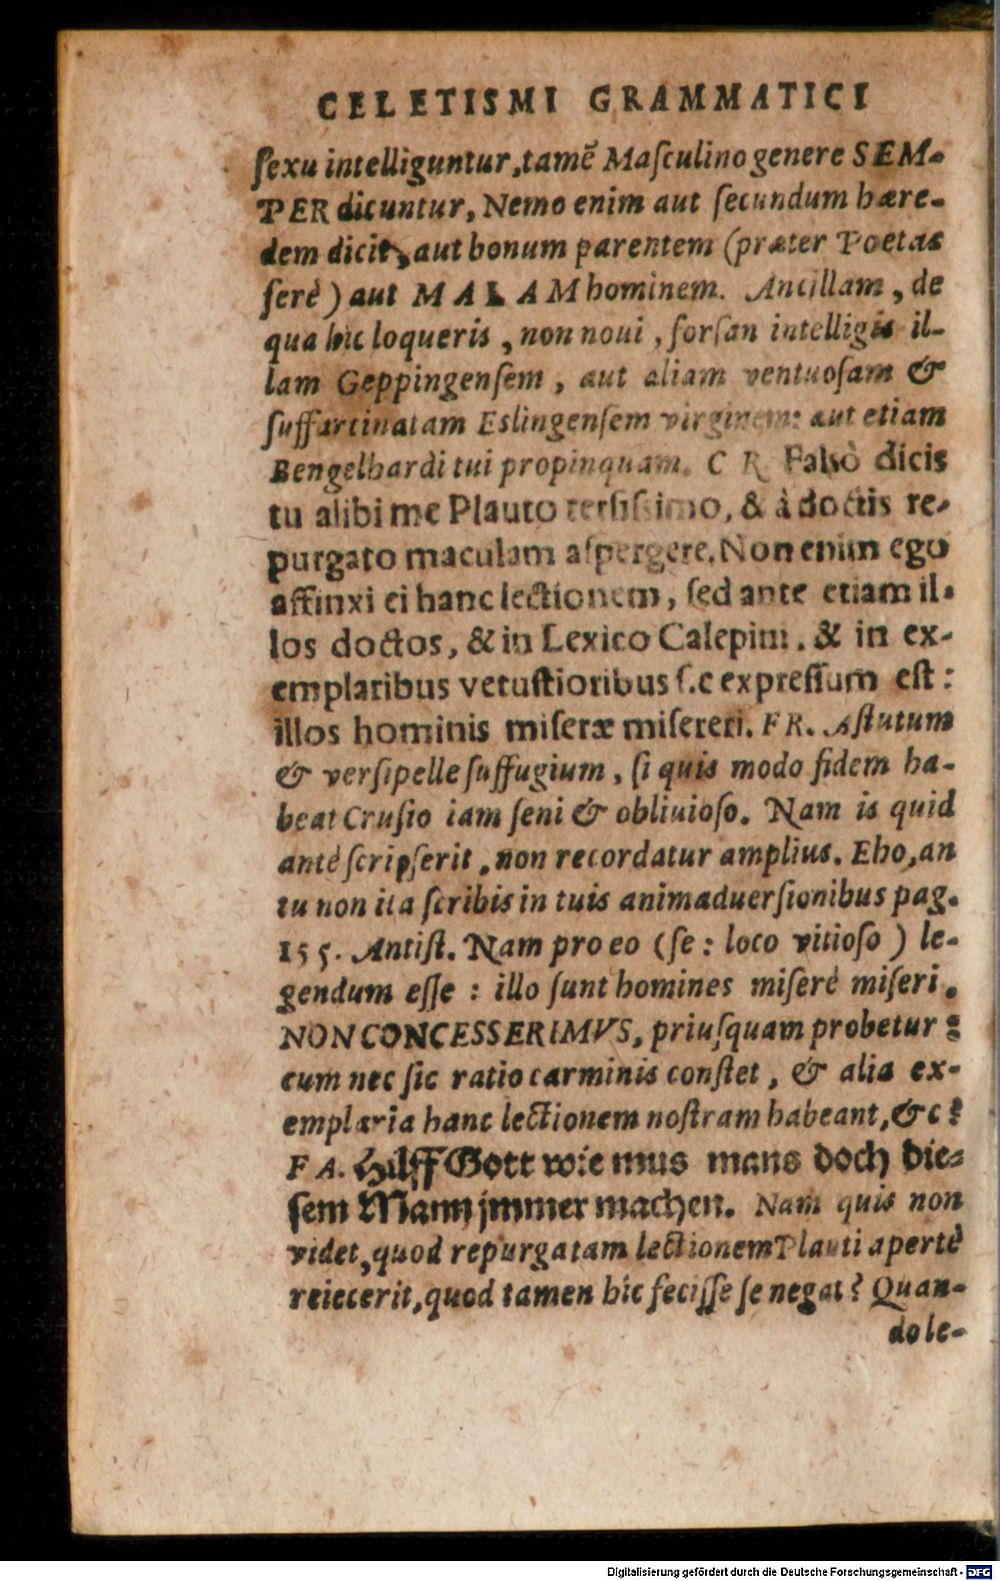 CELETISMI GRAMMATICI
ſexu intelliguntur, tamẽ Maſculino genere SEM-
PER dicuntur, Nemo enim aut ſecundum hære-
dem dicit, aut bonum parentem (præter Poetas
ferè) aut MALAM hominem. Ancillam, de
qua hic loqueris, non noui, forſan intelligis il-
lam Geppingenſem, aut aliam ventuoſam &
ſuffarcinatam Eslingenſem virginem: aut etiam
Bengelhardi tui propinquam. C R. Falsò dicis
tu alibi me Plauto terſiſsimo, & à doctis re-
purgato maculam aſpergere. Non enim ego
affinxi ei hanc lectionem, ſed ante etiam il-
los doctos, & in Lexico Calepini, & in ex-
emplaribus vetuſtioribus ſic expreſſum eſt:
illos hominis miſeræ miſereri. FR. Aſtutum
& verſipelle ſuffugium, ſi quis modo fidem ha-
beat Cruſio iam ſeni & obliuioſo. Nam is quid
antè ſcripſerit, non recordatur amplius. Eho, an
tu non ita ſcribis in tuis animaduerſionibus pag.
155. Antiſt. Nam pro eo (ſe: loco vitioſo) le-
gendum eſſe: illo ſunt homines miſerè miſeri.
NON CONCESSERIMVS, priuſquam probetur:
cum nec ſic ratio carminis conſtet, & alia ex-
emplaria hanc lectionem noſtram habeant, &c?
FA. Hilff Gott wie mus mans doch die-
ſem Mann jmmer machen. Nam quis non
videt, quod repurgatam lectionem Plauti apertè
reiecerit, quod tamen hic feciſſe ſe negat? Quan-
do le-
Digitalisierung gefördert durch die Deutsche Forschungsgemeinschaft - DFG